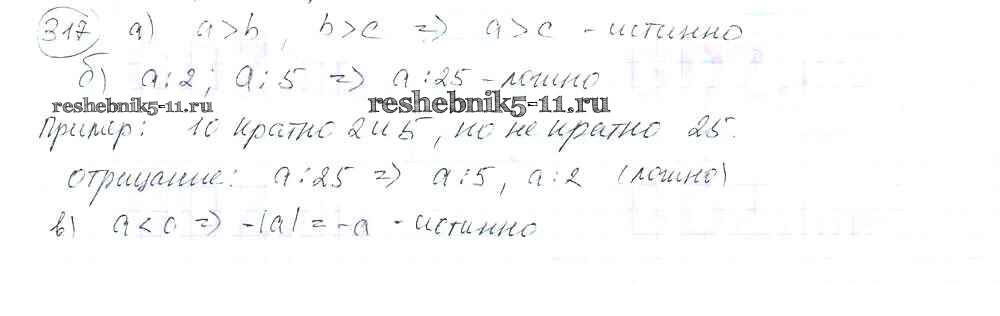 317 а) a>b, b>c => a>c - истинно
б) a:2; a:5 => a:25 - ложно
reshebnik5-11.ru reshebnik5-11.ru
Пример: 10 кратно 2 и 5, но не кратно 25.
отрицание: a:25 => a:5, a:2 (ложно)
в) a<0 => -|a|=-a - истинно